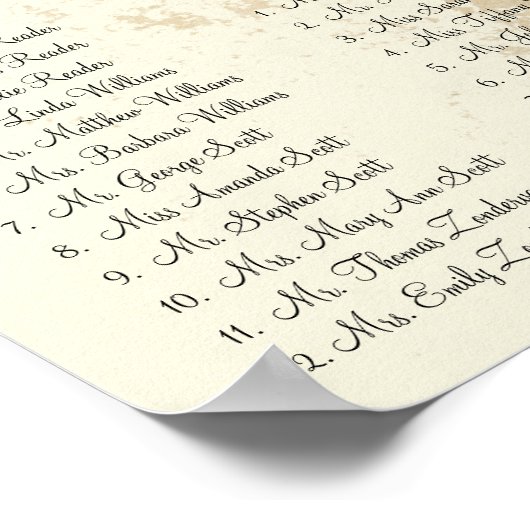 Reader
Reader
Reader
Linda Williams
Matthew Williams
Mrs. Barbara Williams
7. Mr. George Scott
8. Miss Amanda Scott
9. Mr. Stephen Scott
10. Mrs. Mary Ann Scott
11. Mr. Thomas
2. Mrs. Emily
1.
2. M
3. Miss
4. Miss
5. Mr.
6.